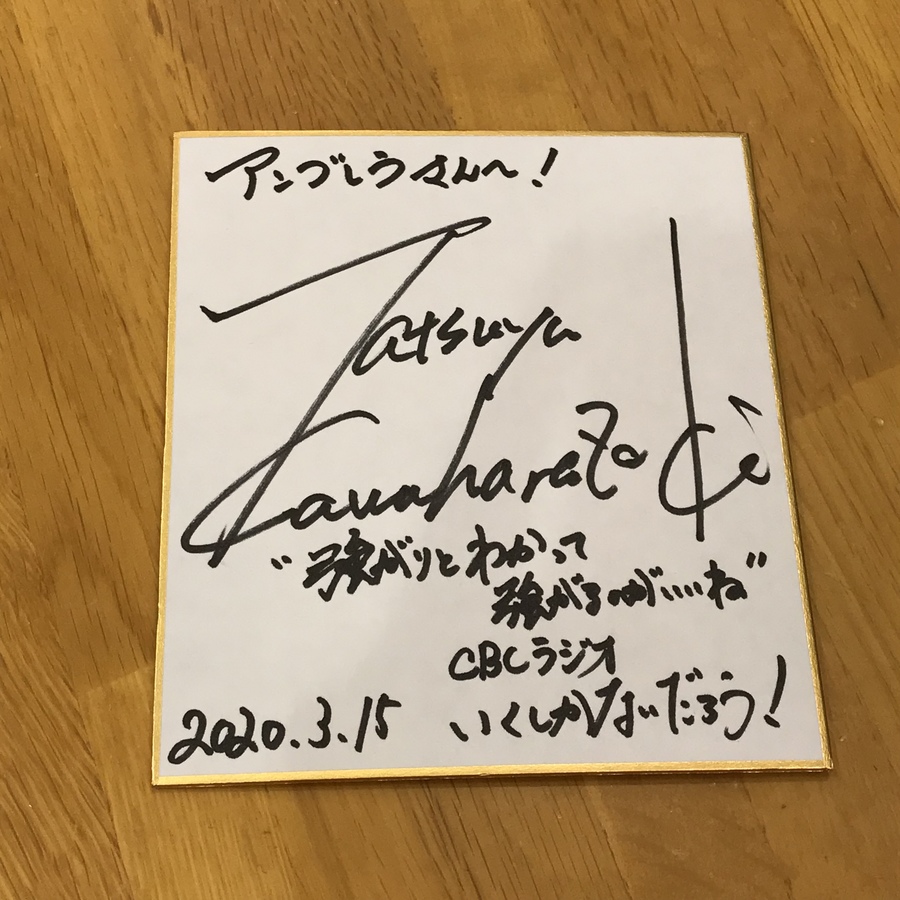 アンブレラさんへ!
Tatsuya
Kawaharazaki
"強がりとわかって
強がるのがいいね"
CBCラジオ
いくしかないだろう!
2020.3.15